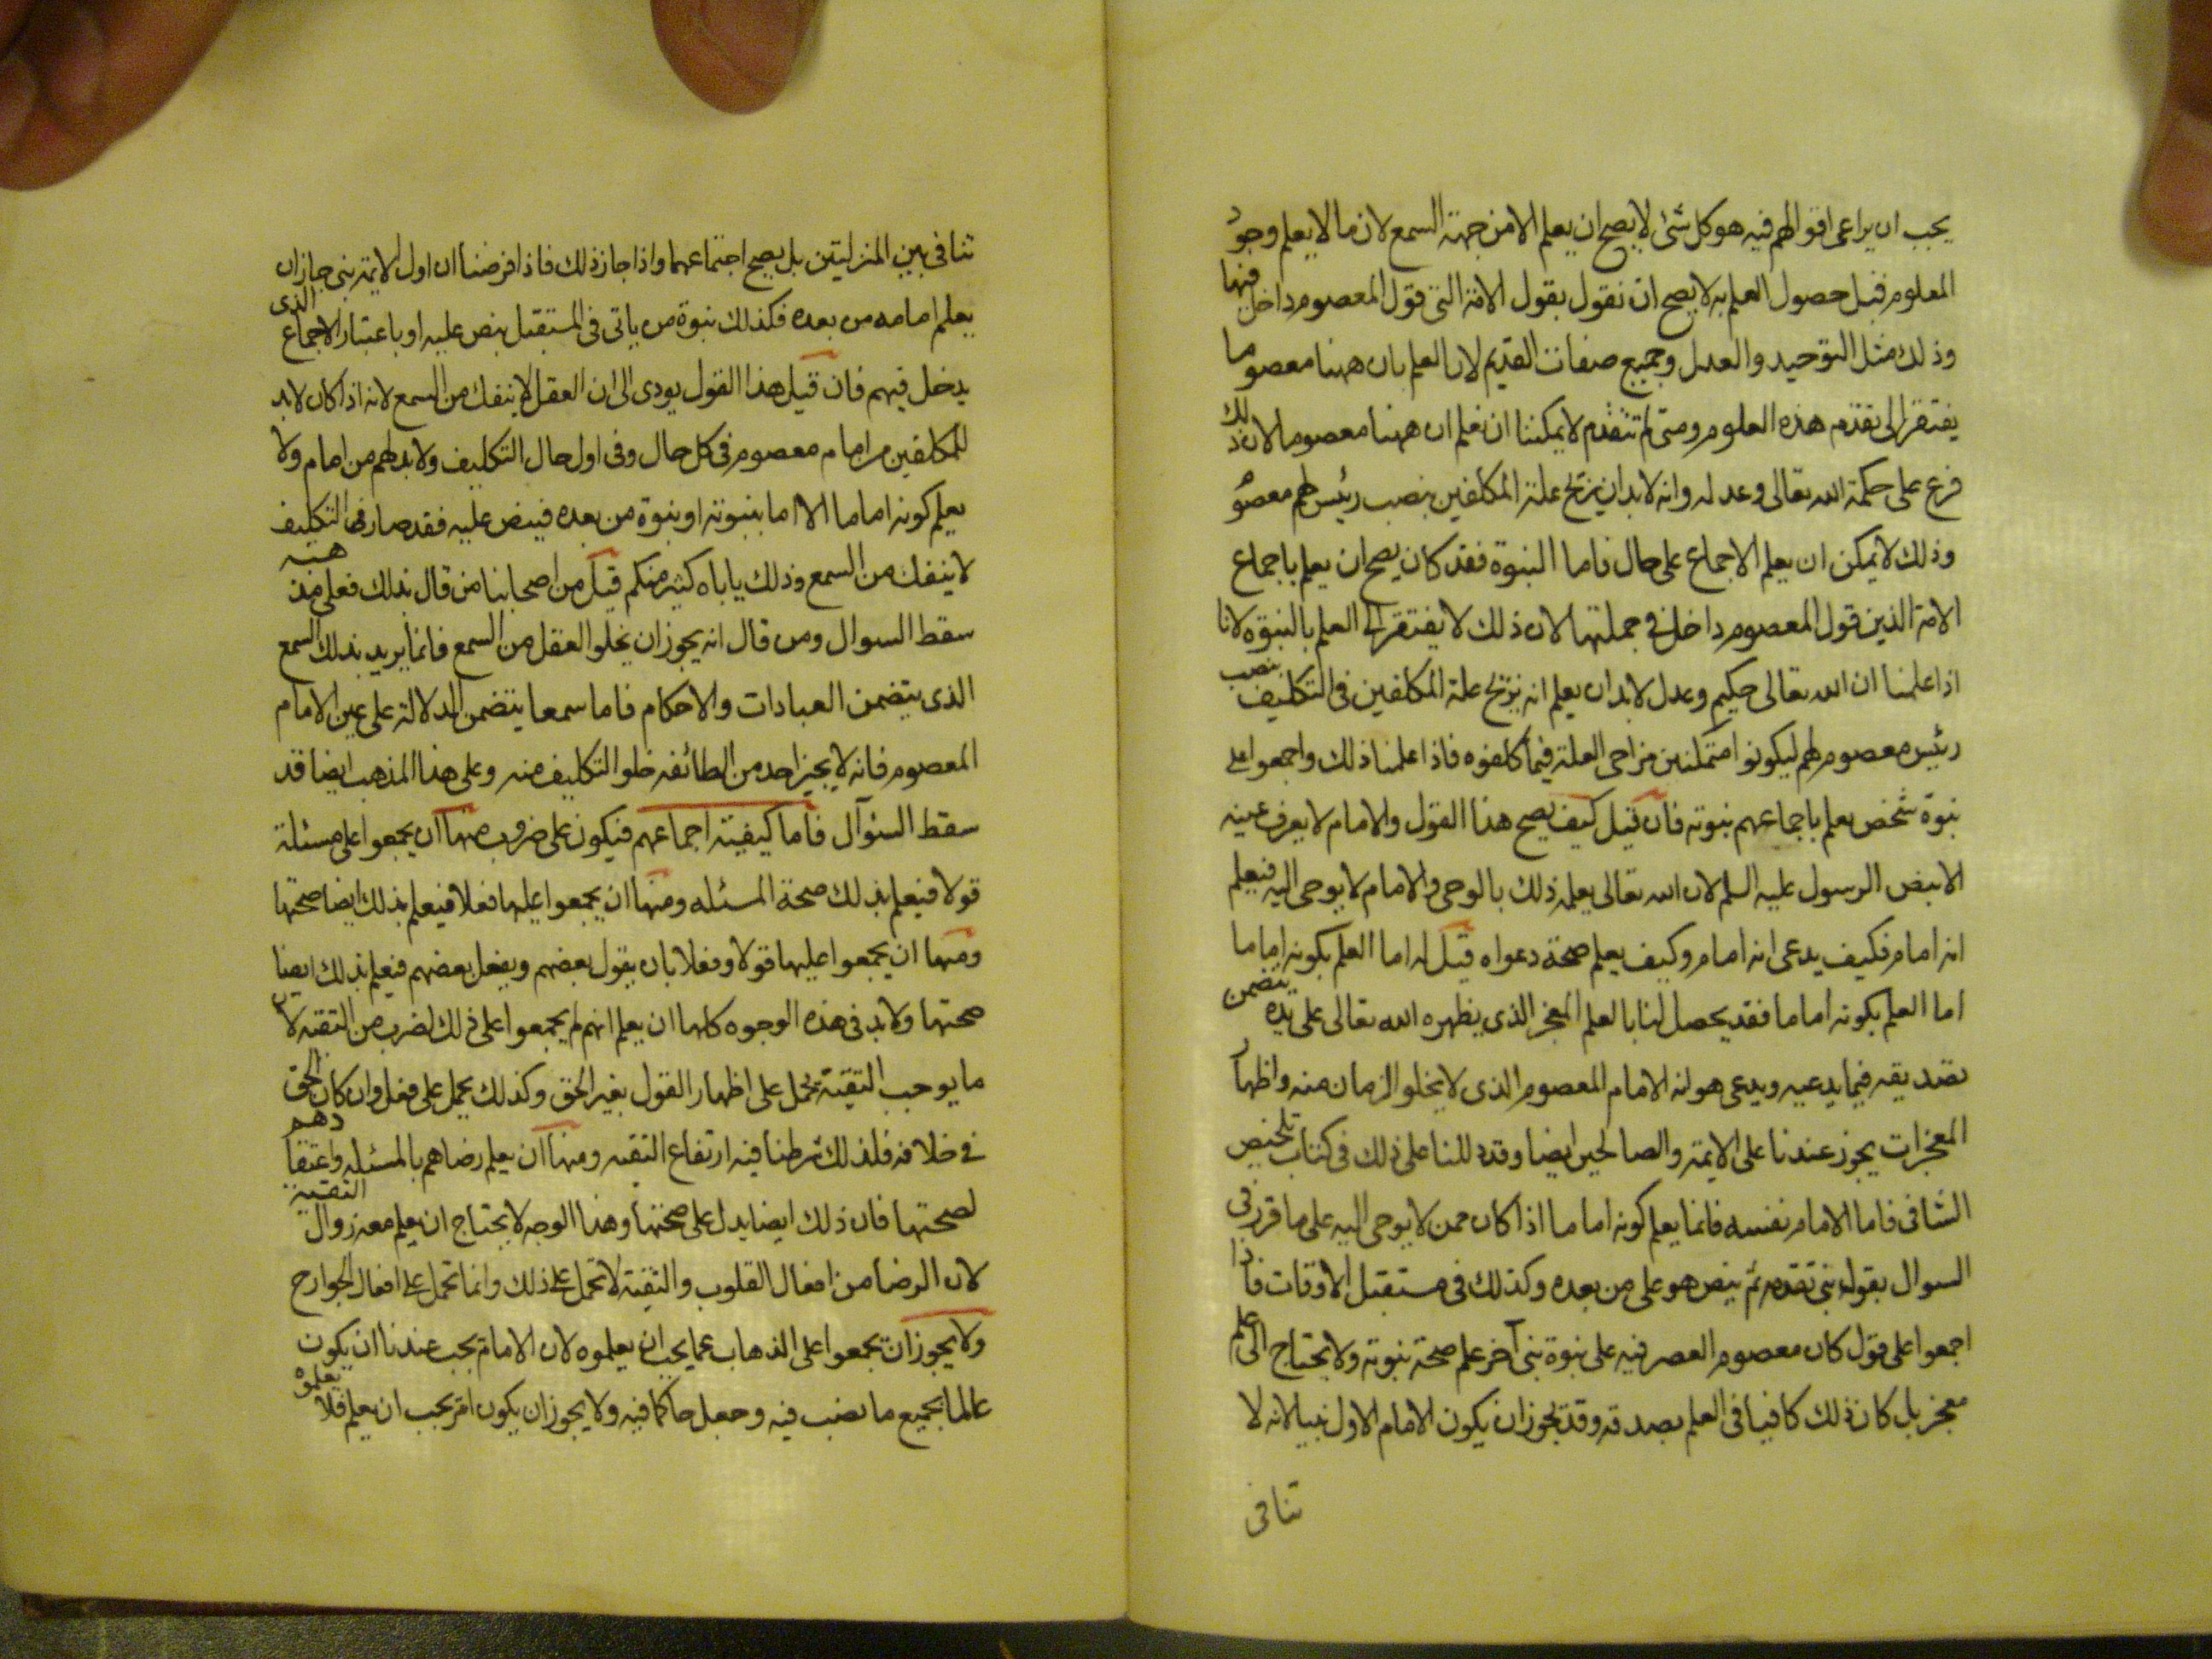 يجب ان يراعى اقوالهم فيه هو كل شئ لا يصح ان يعلم الا من جهة السمع لان ما لا يعلم وجود
المعلوم قبل حصول العلم به لا يصح ان نقول بقول الامة التى قول المعصوم داخل فيها
وذلك مثل التوحيد والعدل وجميع صفات القديم لان العلم بان ههنا معصوما ما
يفتقر الى تقدم هذه العلوم ومتى لم تتقدم لا يمكننا ان نعلم ان ههنا معصوما لان ذلك
فرع على حكمة الله تعالى وعدله وانه لابد ان يزيح علة المكلفين بنصب رئيس لهم معصو
وذلك لا يمكن ان يعلم الاجماع على حال فاما النبوة فقد كان يصح ان يعلم باجماع
الامة الذين قول المعصوم داخل فى جملتها لان ذلك لا يفتقر الى العلم بالنبوة لانا
اذا علمنا ان الله تعالى حكيم وعدل لابد ان يعلم انه يزيح علة المكلفين فى التكليف بنصب
رئيس معصوم لهم ليكونوا متمكنين مزاحى العلة فيما كلفوه فاذا علمنا ذلك واجمعوا على
نبوة شخص يعلم باجماعهم نبوته فان قيل كيف يصح هذا القول والامام لا يعرف عينه
الا بنص الرسول عليه السلم لان الله تعالى يعلمه ذلك بالوحى والامام لا يوحى اليه فيعلم
انه امام فكيف يدعى انه امام وكيف يعلم صحة دعواه قيل له اما العلم بكونه اماما
اما العلم بكونه اماما فقد يحصل لنا بالعلم المعجز الذى يظهره الله تعالى على يده يتضمن
تصديقه فيما يدعيه ويدعى هو انه الامام المعصوم الذى لا يخلو الزمان منه واظهار
المعجزات يجوز عندنا على الايمة والصالحين ايضا وقد دللنا على ذلك فى كتاب تلخيص
الشافى فاما الامام نفسه فانما يعلم كونه اماما اذا كان ممن لا يوحى اليه على ما قرر فى
السوال بقول نبى تقدم ثم ينص هو على من بعده وكذلك فى مستقبل الاوقات فاذا
اجمعوا على قول كان معصوم العصر فيه على نبوة نبى آخر علم صحة نبوته ولا يحتاج الى علم
معجز بل كان ذلك كافيا فى العلم بصدقه وقد يجوز ان يكون الامام الاول نبيا لانه لا
تنافى
تنافى بين المنزلتين بل يصح اجتماعهما واذا جاز ذلك فاذا فرضنا ان اول الايمة نبى جاز ان
يعلم امامه من بعده فكذلك نبوة من ياتى فى المستقبل بنص عليه او باعتبار الاجماع الذى
يدخل فيهم فان قيل هذا القول يودى الى ان العقل لا ينفك من السمع لانه اذا كان لابد
للمكلفين من امام معصوم فى كل حال وفى اول حال التكليف ولابد لهم من امام ولا
يعلم كونه اماما الا اما بنبوته او بنبوة من بعده فينص عليه فقد صار التكليف
لا ينفك من السمع وذلك ياباه كثير منكم قيل من اصحابنا من قال بذلك فعلى مذهبه
سقط السوال ومن قال انه يجوز ان يخلو العقل من السمع فانما يريد بذلك السمع
الذى يتضمن العبادات والاحكام فاما سمعا يتضمن الدلالة على عين الامام
المعصوم فانه لا يجيز احد من الطائفه خلو التكليف منه وعلى هذا المذهب ايضا قد
سقط السئوآل فاما كيفية اجماعهم فيكون على ضروب منها ان يجمعوا على مسئلة
قولا فيعلم بذلك صحة المسئله ومنها ان يجمعوا عليها فعلا فيعلم بذلك ايضا صحتها
ومنها ان يجمعوا عليها قولا وفعلا بان يقول بعضهم ويفعل بعضهم فيعلم بذلك ايضا
صحتها ولابد فى هذه الوجوه كلها ان يعلم انهم لم يجمعوا على ذلك لضرب من التقيه لان
ما يوجب التقية يحمل على اظهار القول بغير الحق وكذلك يحمل على فعل وان كان الحق
فى خلافه فلذلك شرطنا فيه ارتفاع التقيه ومنها ان يعلم رضاهم بالمسئله واعتقادهم
لصحتها فان ذلك ايضا يدل على صحتها وهذا الوجه لا يحتاج ان يعلم معه زوال التقية
لان الرضا من افعال القلوب والتقية لا تحمل على ذلك وانما تحمل على افعال الجوارح
ولا يجوز ان يجمعوا على الذهاب عما يجب ان يعلموه لان الامام يجب عندنا ان يكون
عالما بجميع ما نصب فيه وجعل حاكما فيه ولا يجوز ان يكون امر يجب ان يعلم فلا يعلموه